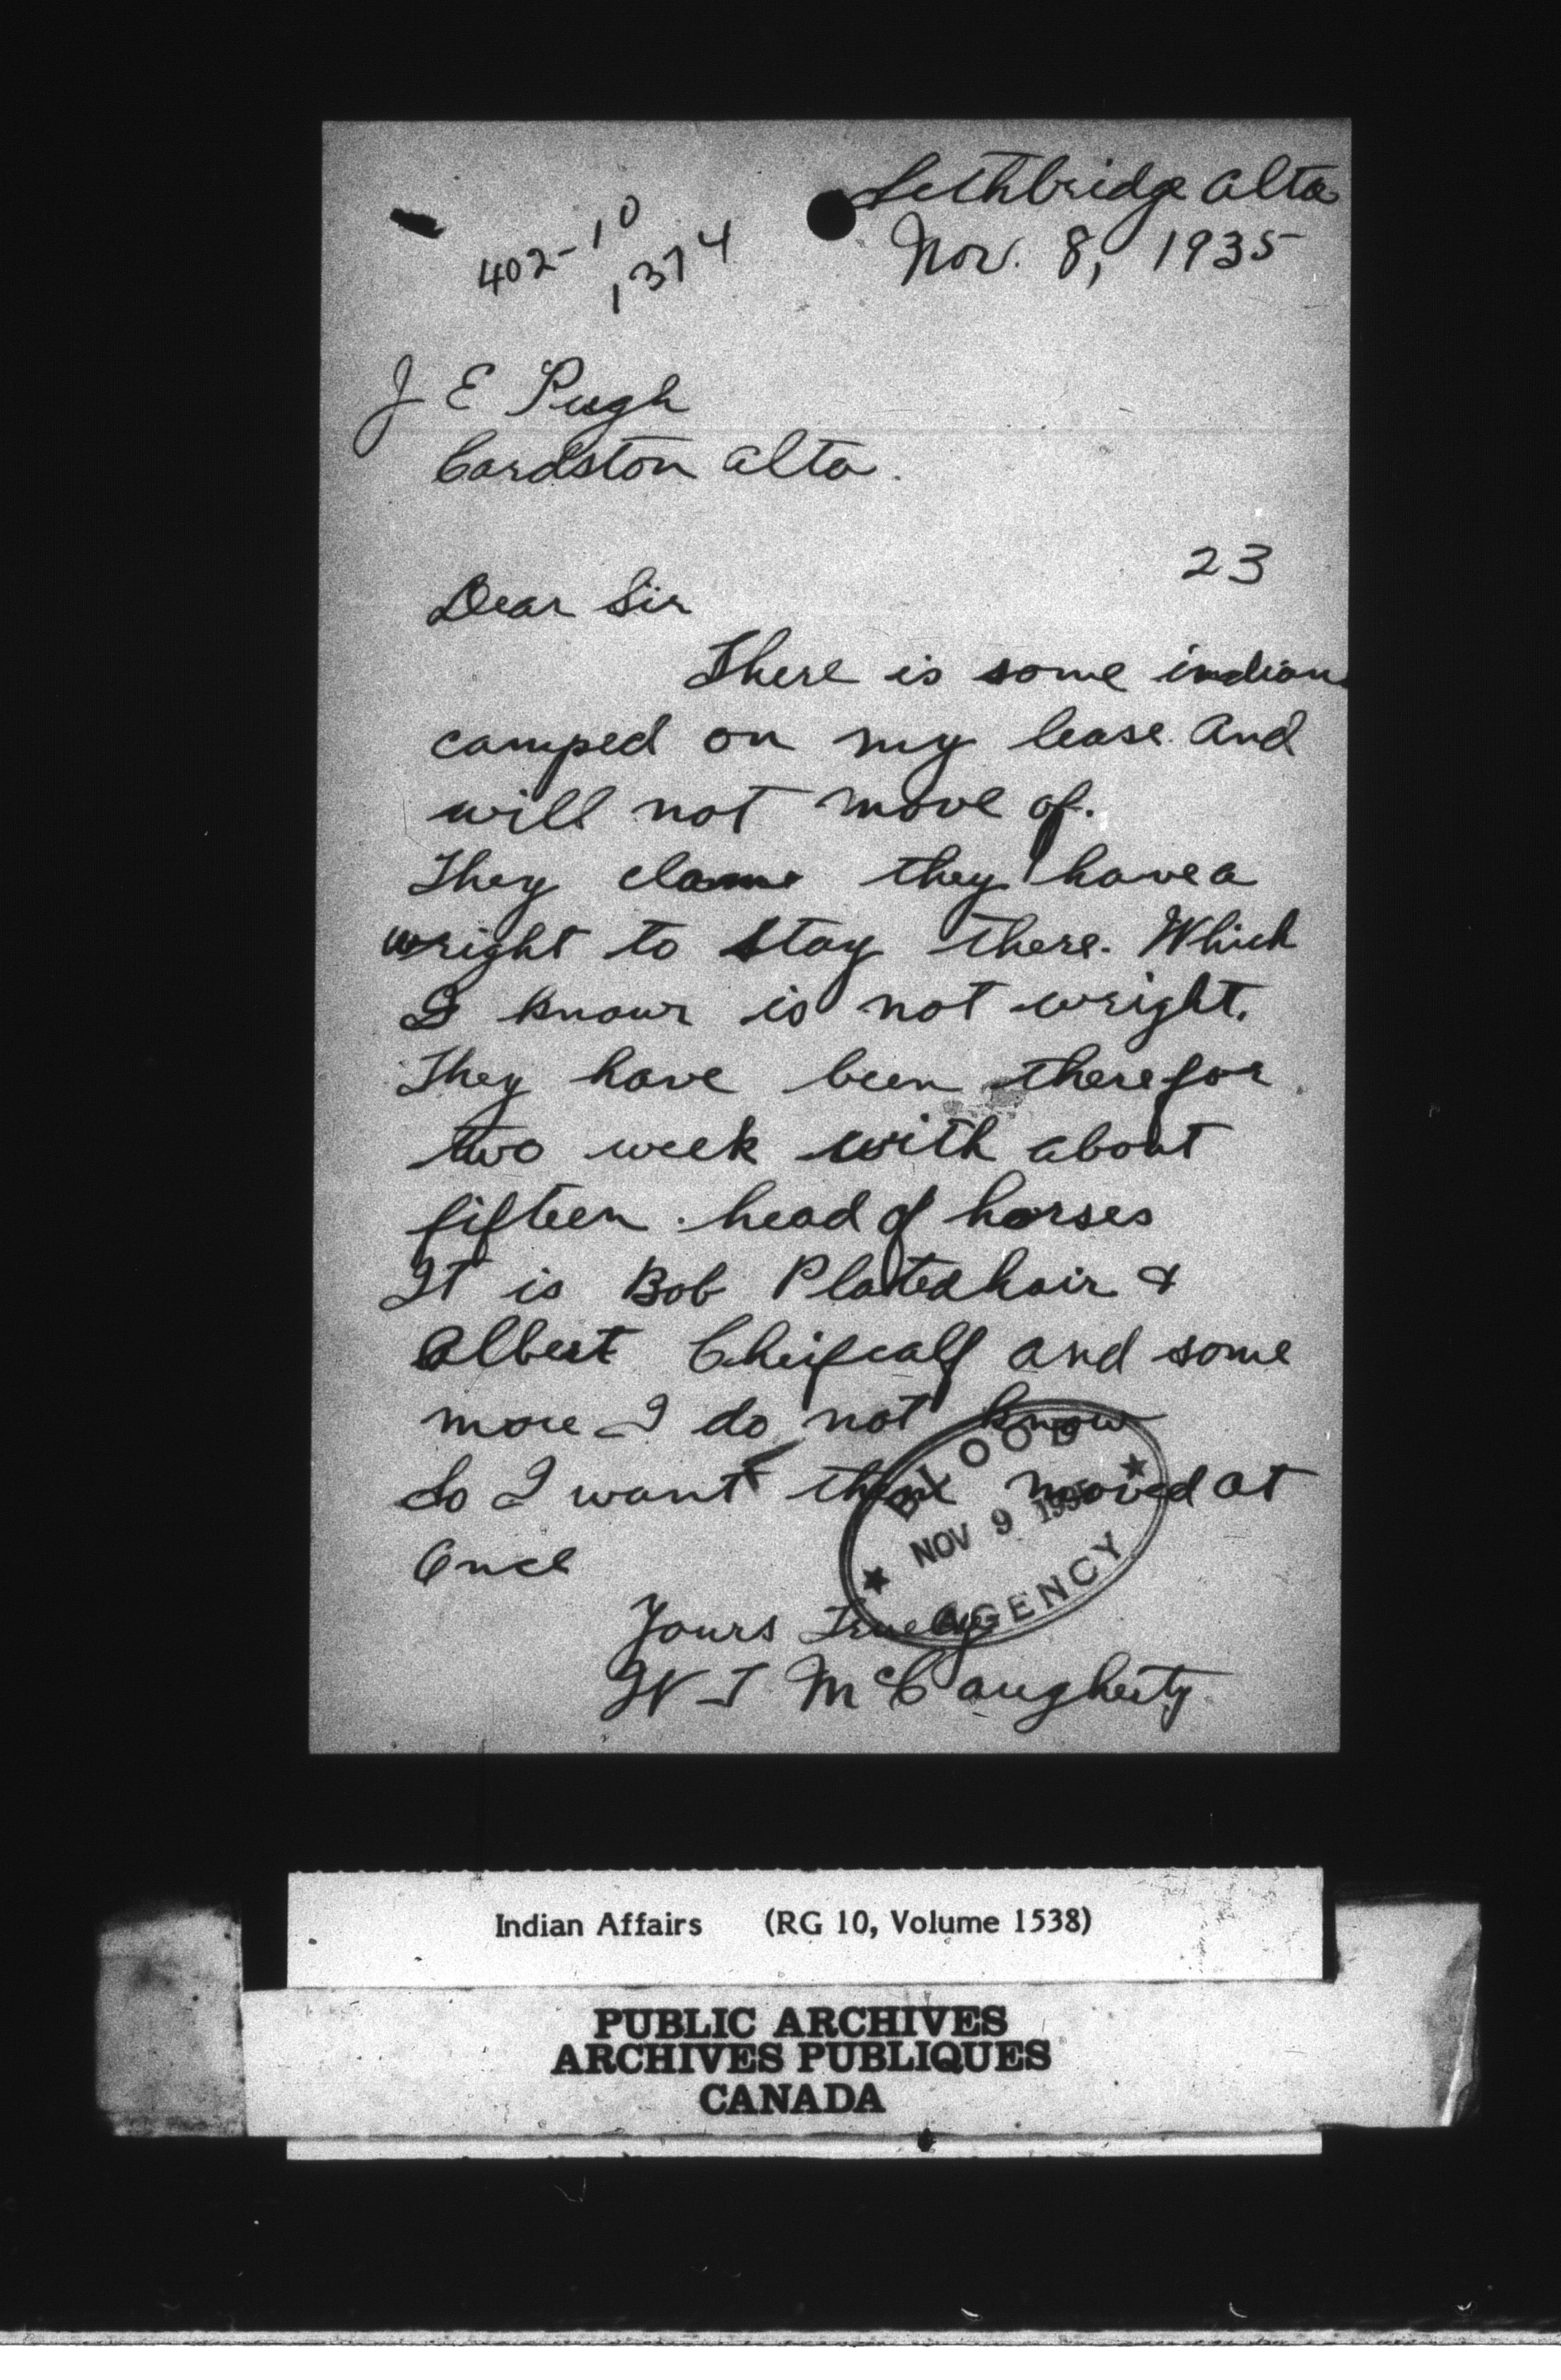 Lethbridge Alta
402-10
1374
Nov. 8, 1935
J E Pugh
Cardston Alta.
23
Dear Sir
There is some indians
camped on my lease. And
will not move of.
They clame they have a
wright to stay there. Which
I know is not wright.
They have been there for
two week with about
fifteen head of horses
It is Bob Platedhair &
Albert Cheifcalf and some
more I do not know
So I want them moved at
Once
Yours Truely
W J McCaugherty
BLOOD
NOV 9 1935
AGENCY
Indian Affairs (RG 10, Volume 1538)
PUBLIC ARCHIVES
ARCHIVES PUBLIQUES
CANADA